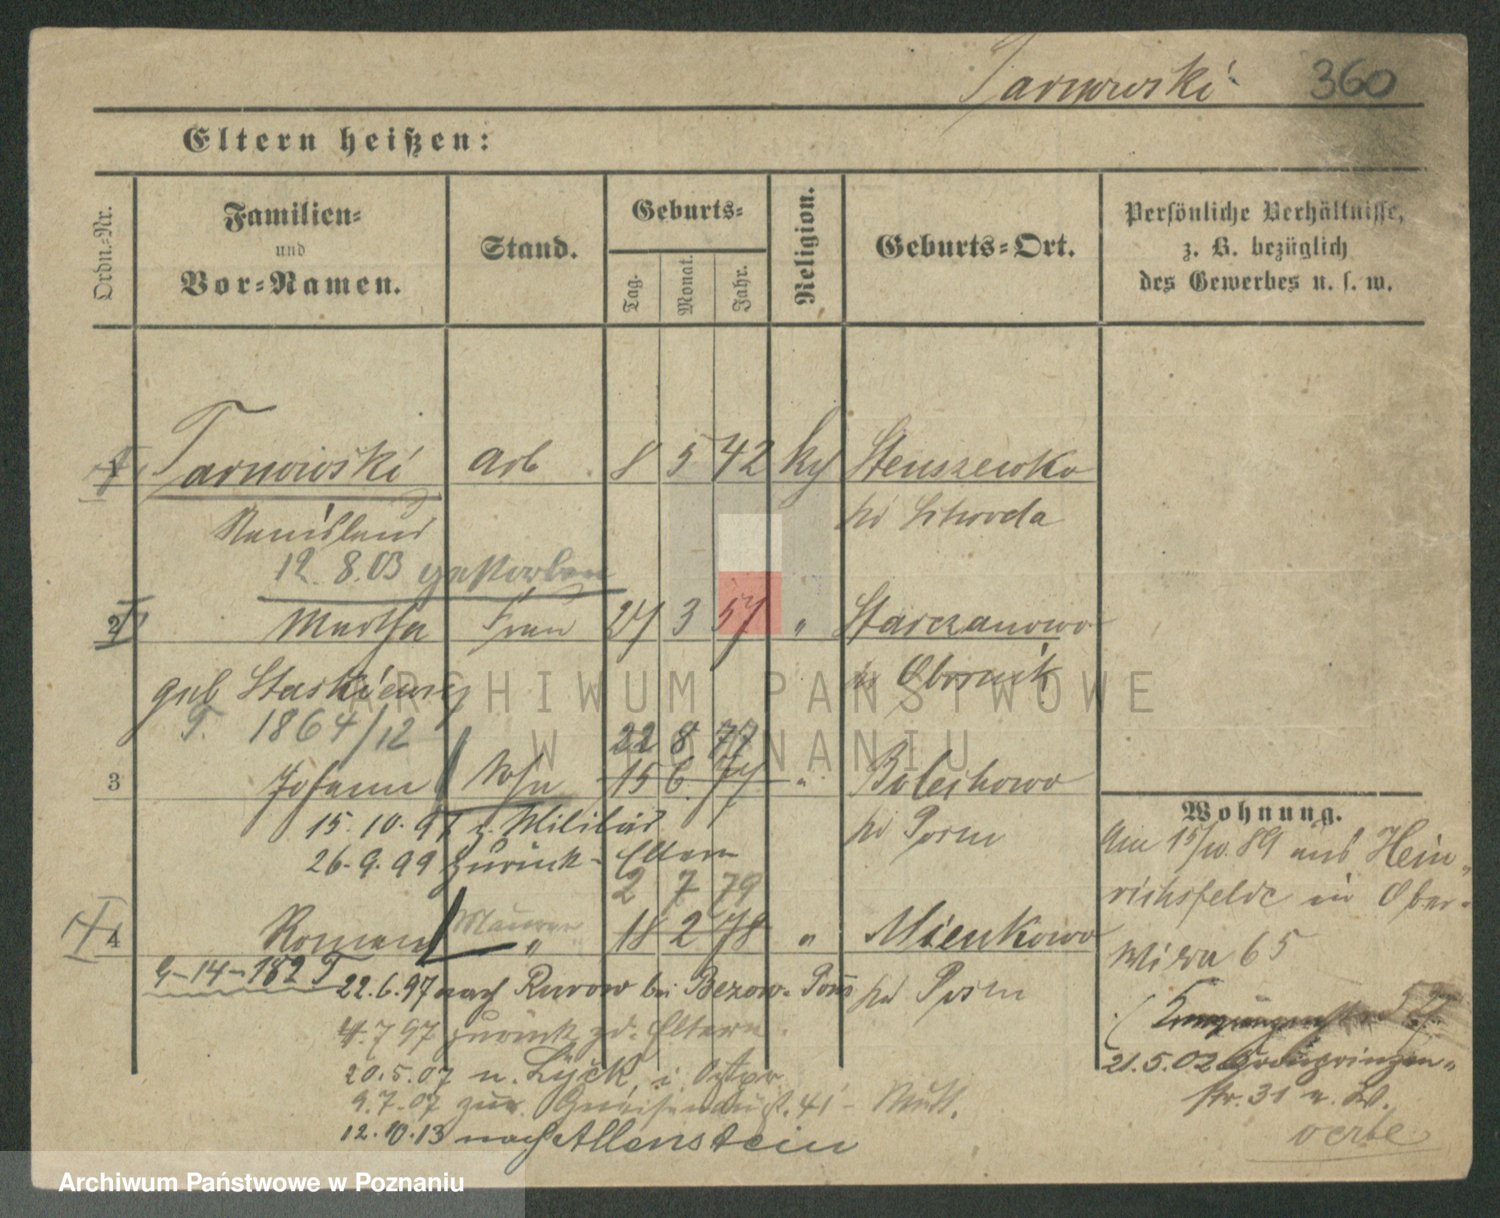 Tarnowski 360
Eltern heißen:
Ordn.-Nr.
Familien-
und
Vor-Namen.
Stand.
Geburts-
Tag.
Monat.
Jahr.
Religion.
Geburts-Ort.
Persönliche Verhältnisse,
z. B. bezüglich
des Gewerbes u. s. w.
1 Tarnowski Arb 8 5 42 Stenszewko
Stanislaus
12. 8. 03 gestorben
2 Martha Frau 27 3 57 " Starczanowo
Obornik
geb
T. 1864/12
22 8 77
3 Johann Sohn 15 6 77 " Bolechowo
bei Posen
15. 10. 97 z. Militär
26. 9. 99 zurück- Eltern
2 7 79
4 Roman Maurer " 18 2 78 " Mienkowo
bei Posen
9-14-182 T
22.6.97 nach bei
4. 7 97 zurück zd. Eltern
20.5.07 n. Lyck, i. Ostpr
9.7.07 zur. Gneisenaust. 41 - Mutt.
12.10.13 nach Allenstein
Wohnung.
Am 15/10. 89 aus Hein-
richsfelde in Ober-
Wilda 65
21.5.02 Kronprinzen-
str. 31 n. W.
verte
ARCHIWUM PAŃSTWOWE
W POZNANIU
Archiwum Państwowe w Poznaniu